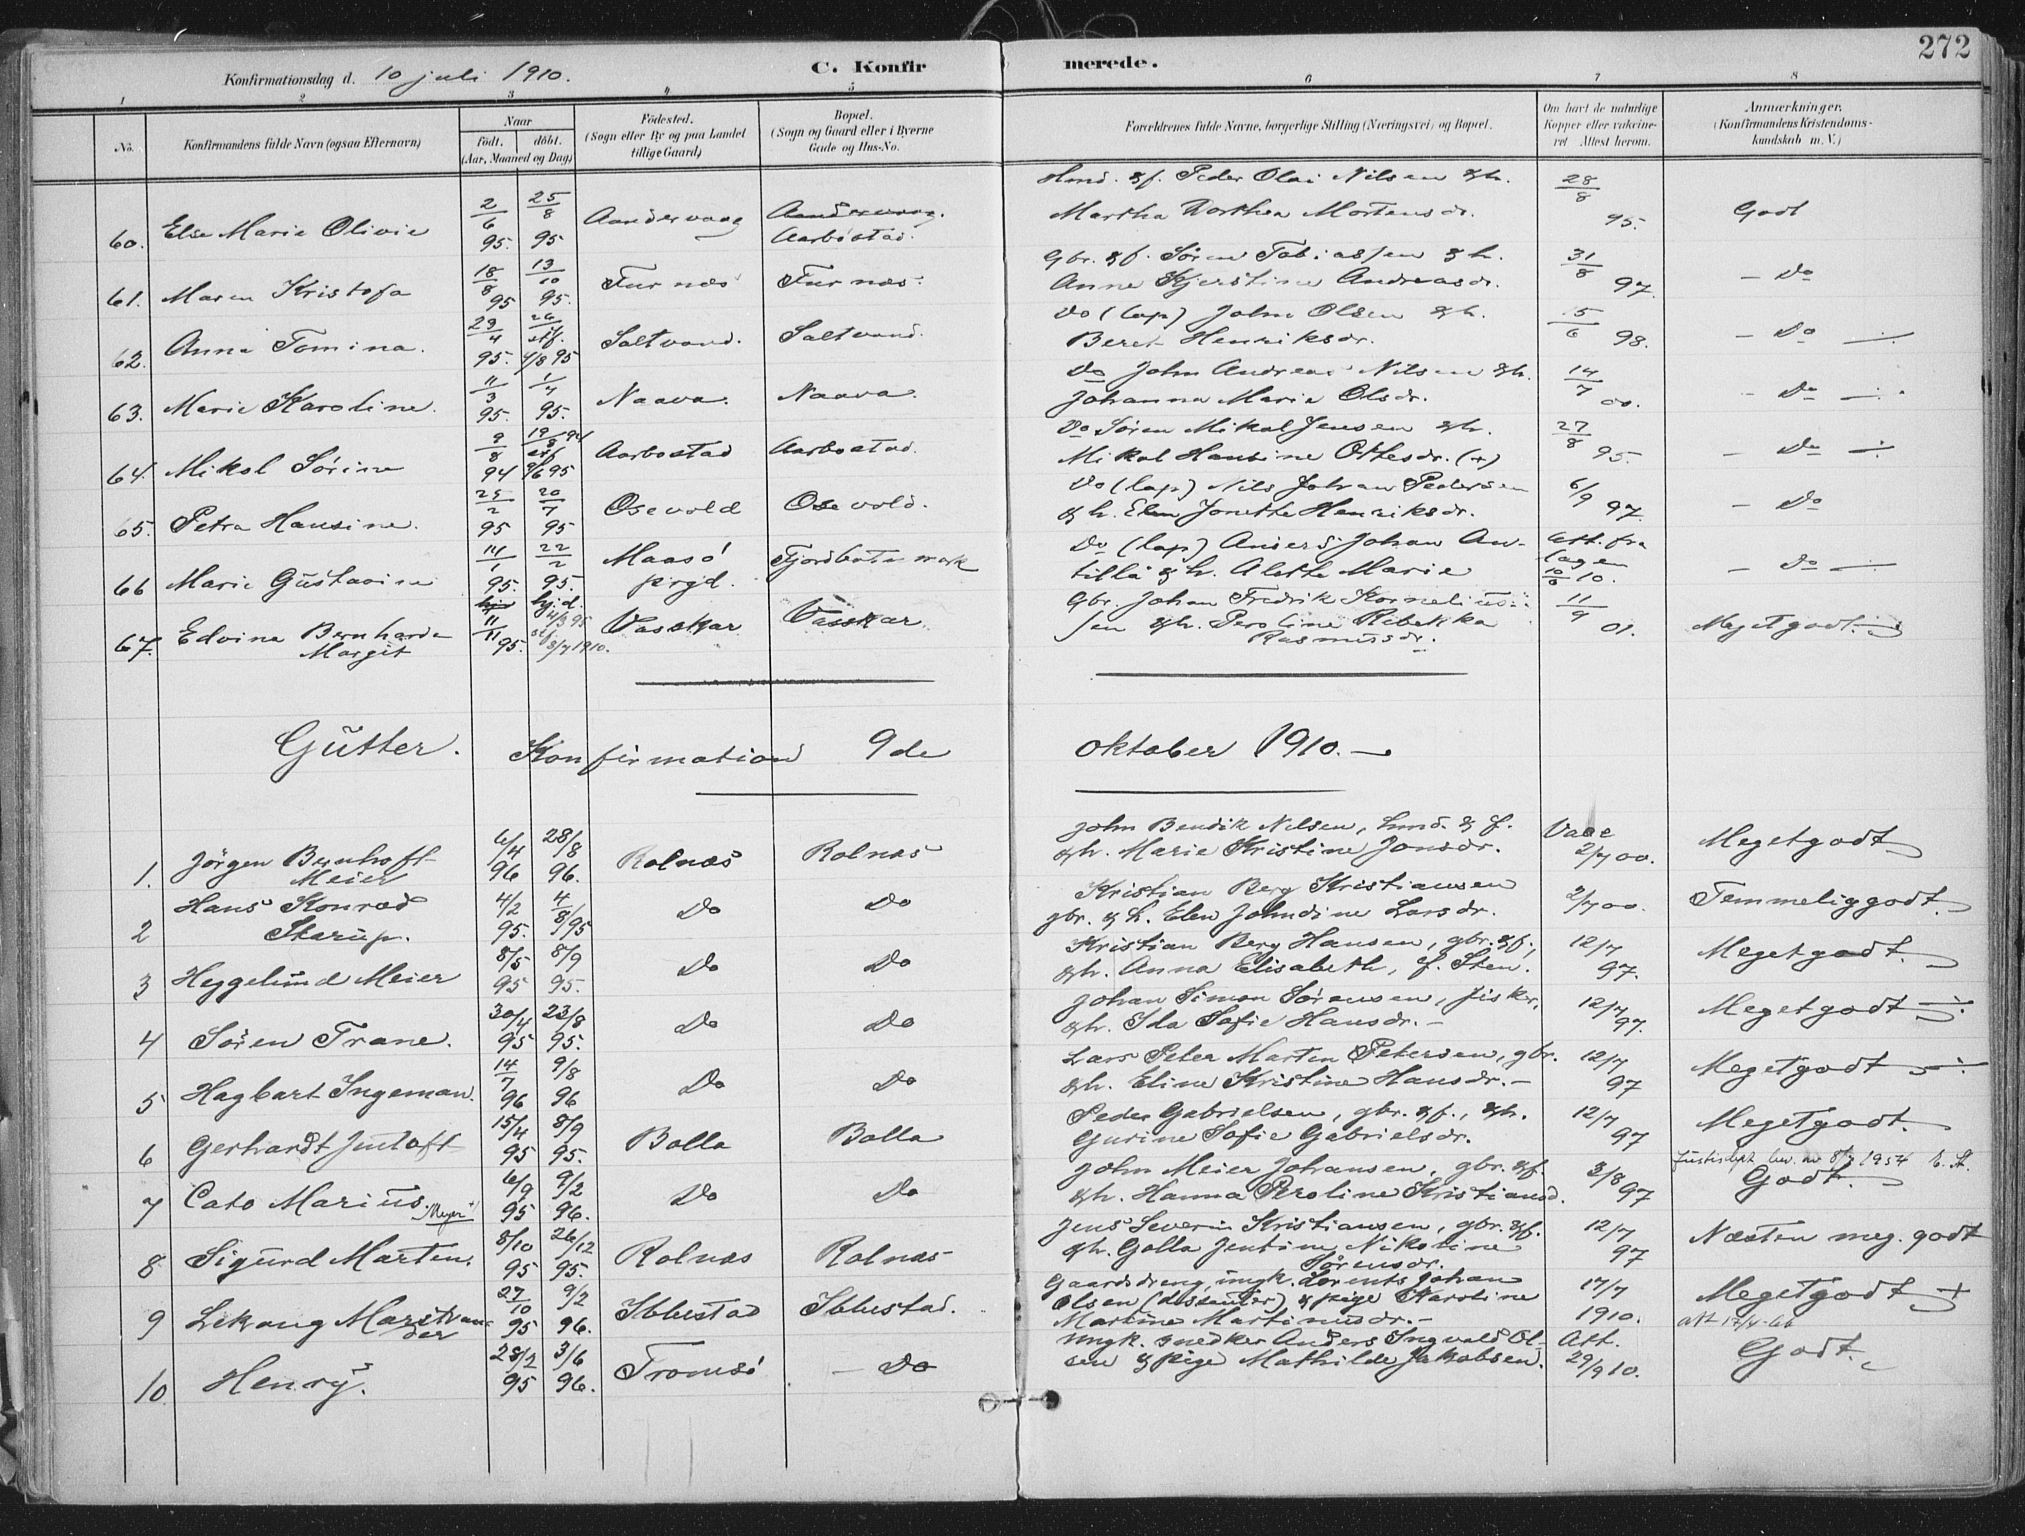 272
Konfirmationsdag d. 10 juli 1910. C. Konfirmerede.
1 2 3 4 5 6 7 8
No. Konfirmandens fulde Navn (ogsaa Efternavn) Naar født. døbt. (Aar, Maaned og Dag) Fødested. (Sogn eller By og paa Landet tillige Gaard) Bopæl. (Sogn og Gaard eller i Byerne Gade og Hus-No. Forældrenes fulde Navne, borgerlige Stilling (Næringsvei) og Bopæl. Om havt de naturlige Kopper eller vakcineret Attest herom. Anmærkninger. (Konfirmandens Kristendomskundskab m. V.)
Hmd. & f. Peder Olai Nilsen & h.
60. Else Marie Olivie 2/6 95. 25/8 95 Aandervaag Aandervaag. Aarbostad. Martha Dorthea Mortensdr. 28/8 95. Godt
Gbr. & f. Søren Tobiassen & h.
61. Maren Kristofa 18/8 95 13/10 95. Furnæs Furnæs. Anne Kjerstine Andreasdr. 31/8 97. - Do
Do (lap) John Olsen & h.
62. Anna Tomina. 29/4 95. 26/ stf. 4/8 95 Saltvand. Saltvand. Beret Henriksdr. 15/6 98. - Do -
Do John Andreas Nilsen & h.
63. Marie Karoline. 11/3 95. 1/7 95. Naava. Naava. Johanna Marie Olsdr. 14/7 00. - Do -
Do Søren Mikal Jensen & h.
64. Mikal Sørine 9/8 94 19/8 94 stf 9/6 95 Aarbostad Aarbostad. Mikal Hansine Ottesdr. (+) 27/8 95. - Do -
Do (lap) Nils Johan Pedersen
65. Petra Hansine. 25/2 95 20/7 95 Osevold Osevold. & h. Elen Jonetta Henriksdr. 6/9 97. - Do
Do (lap) Anders Johan An-
66 Marie Gustavine 14/1 95. 22/2 95. hjd. Maasø prgd. Fjordbotnmark tilla & h. Alette Marie Att. fra 10/6 10. - Do -
Gbr. Johan Fredrik Kornelius-
67. Edvina Bernharda Margit 11/11 95. 4/3 95 stf. 3/7 1910. Vasskar Vasskar sen & h. Peroline Rebekka Rasmusdr. 11/9 01. Megetgodt.
Gutter. Konfirmation 9de oktober 1910.
John Bendik Nilsen, hmd. & f.
1. Jørgen Bernhoft Meier 6/4 96 28/8 96. Rolnæs Rolnæs & h. Marie Kristine Jonsdr. Vacc 2/7 00. Megetgodt
Kristian Berg Kristiansen
2 Hans Konrad Skarup. 4/2 95. 4/8 95 Do Do gbr. & h. Elen Johndine Larsdr. 2/7 00. Temmeliggodt.
Kristian Berg Hansen, gbr. & f.,
3 Heggelund Meier 8/5 95 8/9 95. Do Do & h. Anna Elisabeth, f. Sten. 12/7 97. Megetgodt.
Johan Simon Sørensen, fisker,
4 Søren Trane. 30/4 95 23/8 95. Do Do & h. Ida Sofie Hansdr. - 12/7 97. Megetgodt
Lars Peter Marten Petersen, gbr.
5 Hagbart Ingeman. 14/7 96 9/8 96 Do Do & h. Eline Kristine Hansdr. - 12/7 97 Megetgodt
Peder Gabrielsen, gbr. & f., & h.
6 Gerhardt Justoft 15/4 95 8/9 95. Bolla Bolla Gurine Sofie Gabrielsdr. 12/7 97 Megetgodt.
John Meier Johansen, gbr. & f. Justisdept. bev. av 8/7 1954 E. St.
7 Cato Marius "Meyer" 6/9 95 9/2 96. Do Do & h. Hanna Peroline Kristiansd. 3/8 97 Godt.
Jens Severin Kristiansen, gbr. & f.
8 Sigurd Marten. 8/10 95 26/12 95. Rolnæs Rolnæs & h. Golla Jentine Nikoline Sørensdr. 12/7 97 Næsten meg. godt
Gaardsdreng, ungk. Lorents Johan
9 Lekang Marstrander 27/10 95 9/2 96. Ibbestad Ibbestad. Olsen (dissenter) & pige Karoline Martine Martinusdr. - 17/7 1910. Megetgodt
att 17/4-66
Ungk. snedker Anders Ingvald Ol-
10 Henry. 28/2 95 3/6 96. Tromsø - Do sen & pige Mathilde Jakobsen. Att. 29/9 10. Godt.